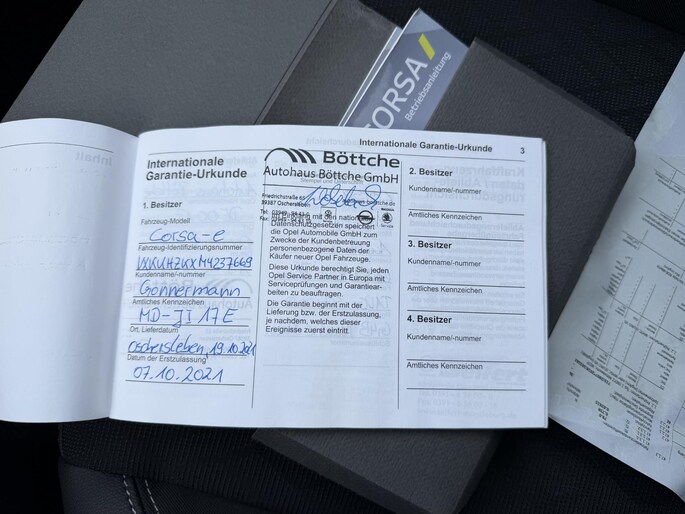 CORSA
Betriebsanleitung
Internationale Garantie-Urkunde 3
Internationale
Garantie-Urkunde
1. Besitzer
Fahrzeug-Modell
Corsa-e
Fahrzeug-Identifizierungsnummer
Kundenname/-nummer
Gonnermann
Amtliches Kennzeichen
MD-JJ 17E
Ort, Lieferdatum
Oschersleben, 19.10.2021
Datum der Erstzulassung
07.10.2021
Böttche
Autohaus Böttche GmbH
Friedrichstraße 65
39387 Oschersleben
Tel.
Fax
mit den
Datenschutzgesetzen speichert
die Opel Automobile GmbH zum
Zwecke der Kundenbetreuung
personenbezogene Daten der
Käufer neuer Opel Fahrzeuge.
Diese Urkunde berechtigt Sie, jeden
Opel Service Partner in Europa mit
Serviceprüfungen und Garantiear-
beiten zu beauftragen.
Die Garantie beginnt mit der
Lieferung bzw. der Erstzulassung,
je nachdem, welches dieser
Ereignisse zuerst eintritt.
2. Besitzer
Kundenname/-nummer
Amtliches Kennzeichen
3. Besitzer
Kundenname/-nummer
Amtliches Kennzeichen
4. Besitzer
Kundenname/-nummer
Amtliches Kennzeichen